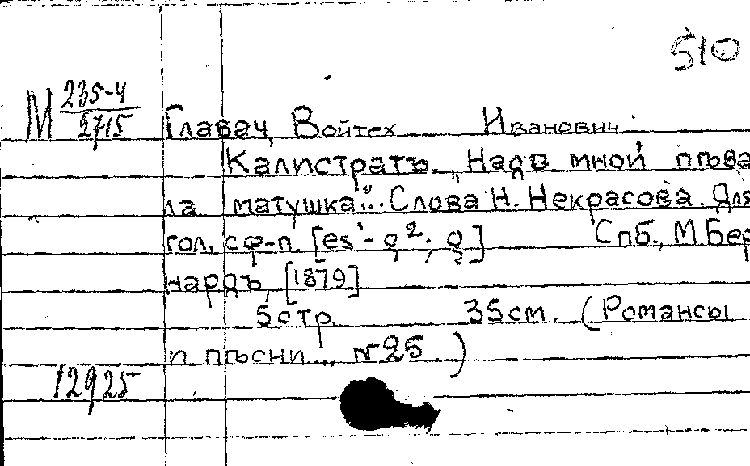 510
М 235-4
2715
Главач, Войтех Иванович.
Калистратъ. „Надъ мной пѣва
ла матушка"... Слова Н. Некрасова. Для
гол. с ф-п. [es¹-g²; g] Спб., М. Бер
нардъ, [1879]
5 стр. 35 см. (Романсы
и пѣсни... № 25.)
12925